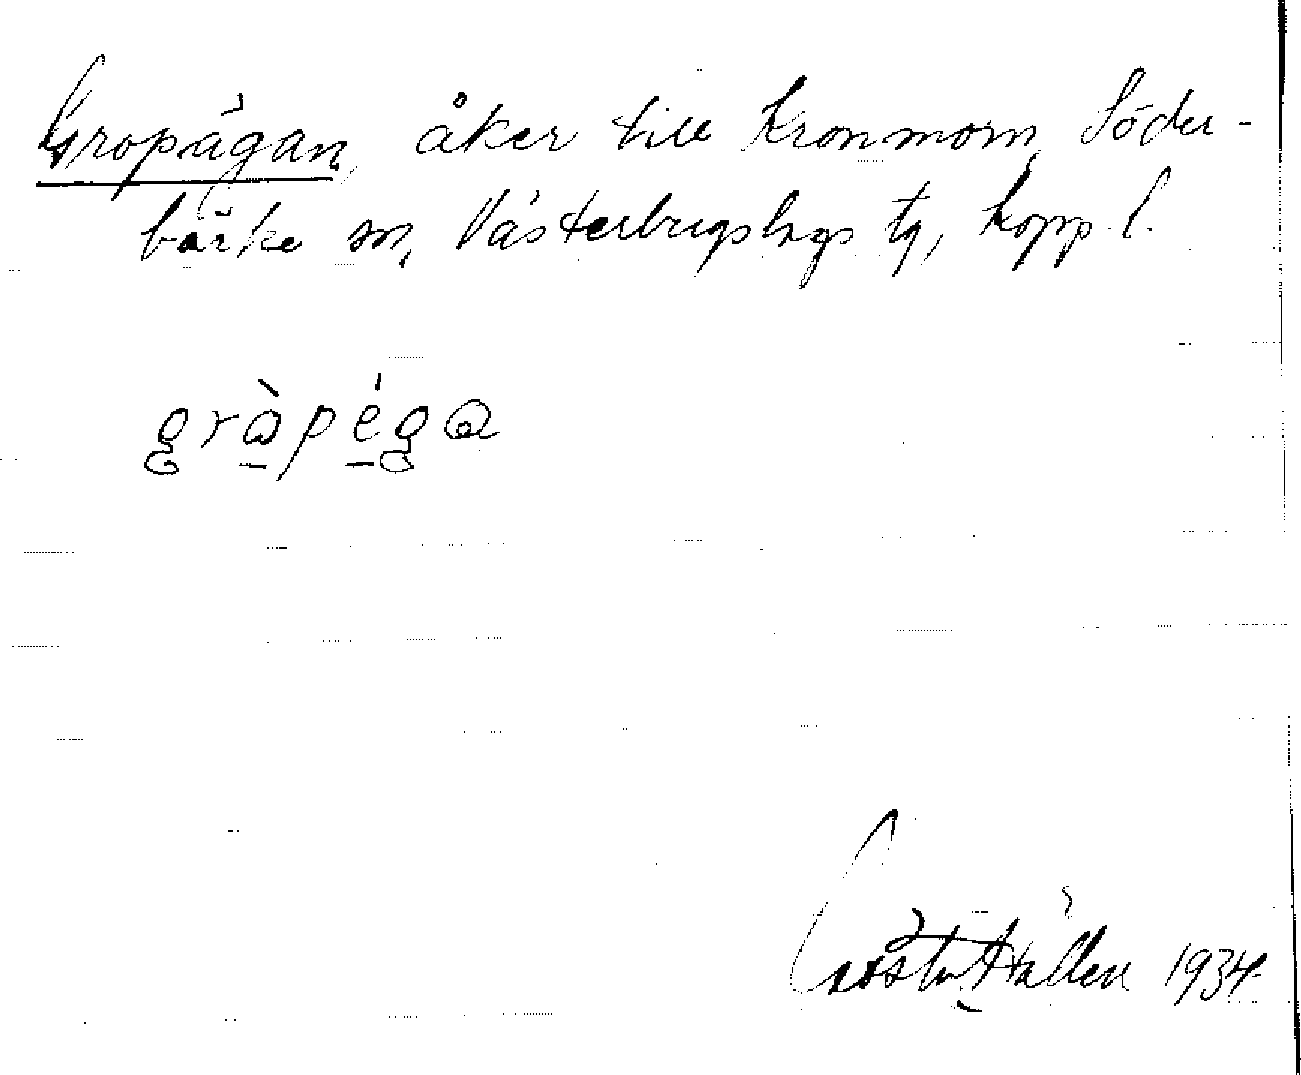 Gropägan, åker till Kronmorn, Söder-
bärke sn, Västerbergslags tg, Kopp. l.
gràpéga
Gösta Hållen 1934